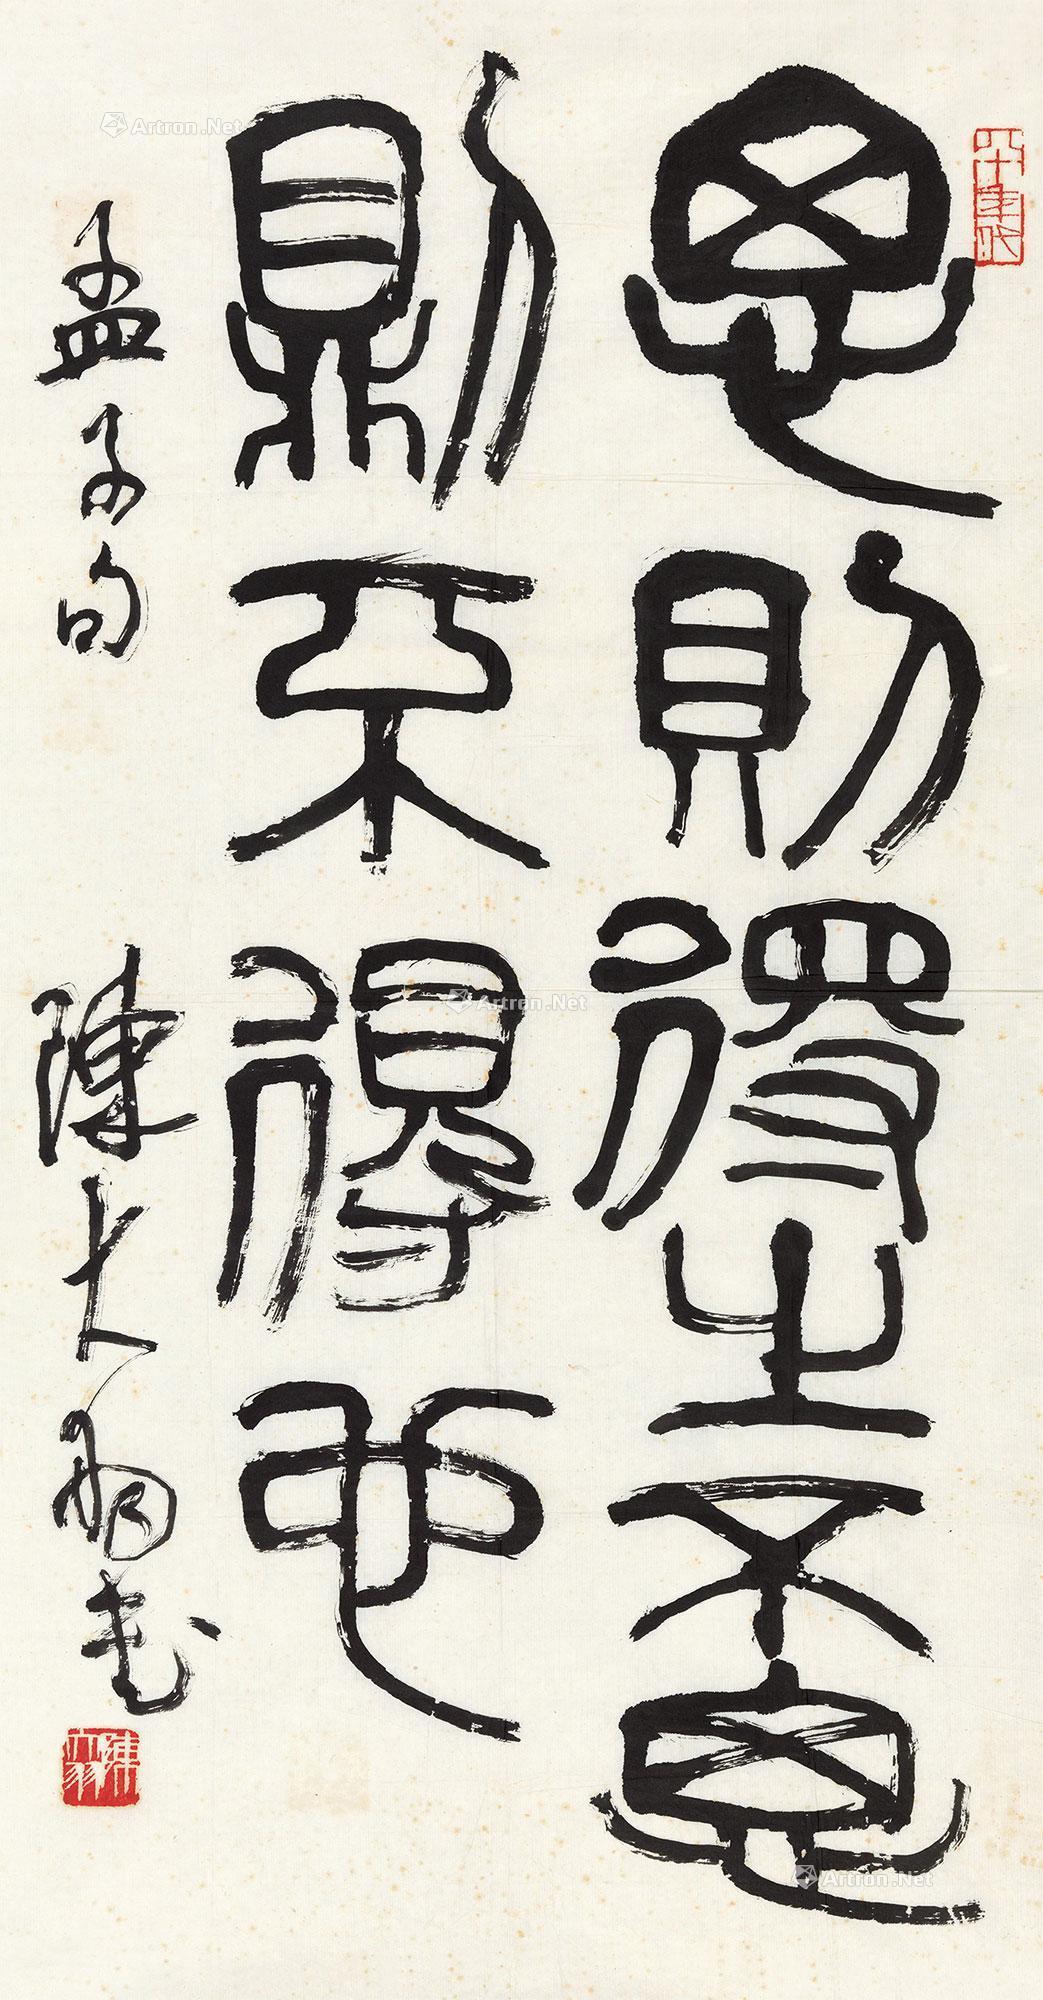 思則得之不思
則不得也
孟子句
陳大羽書
八十年代
陳大羽
Artron.Net
Artron.Net
Artron.Net